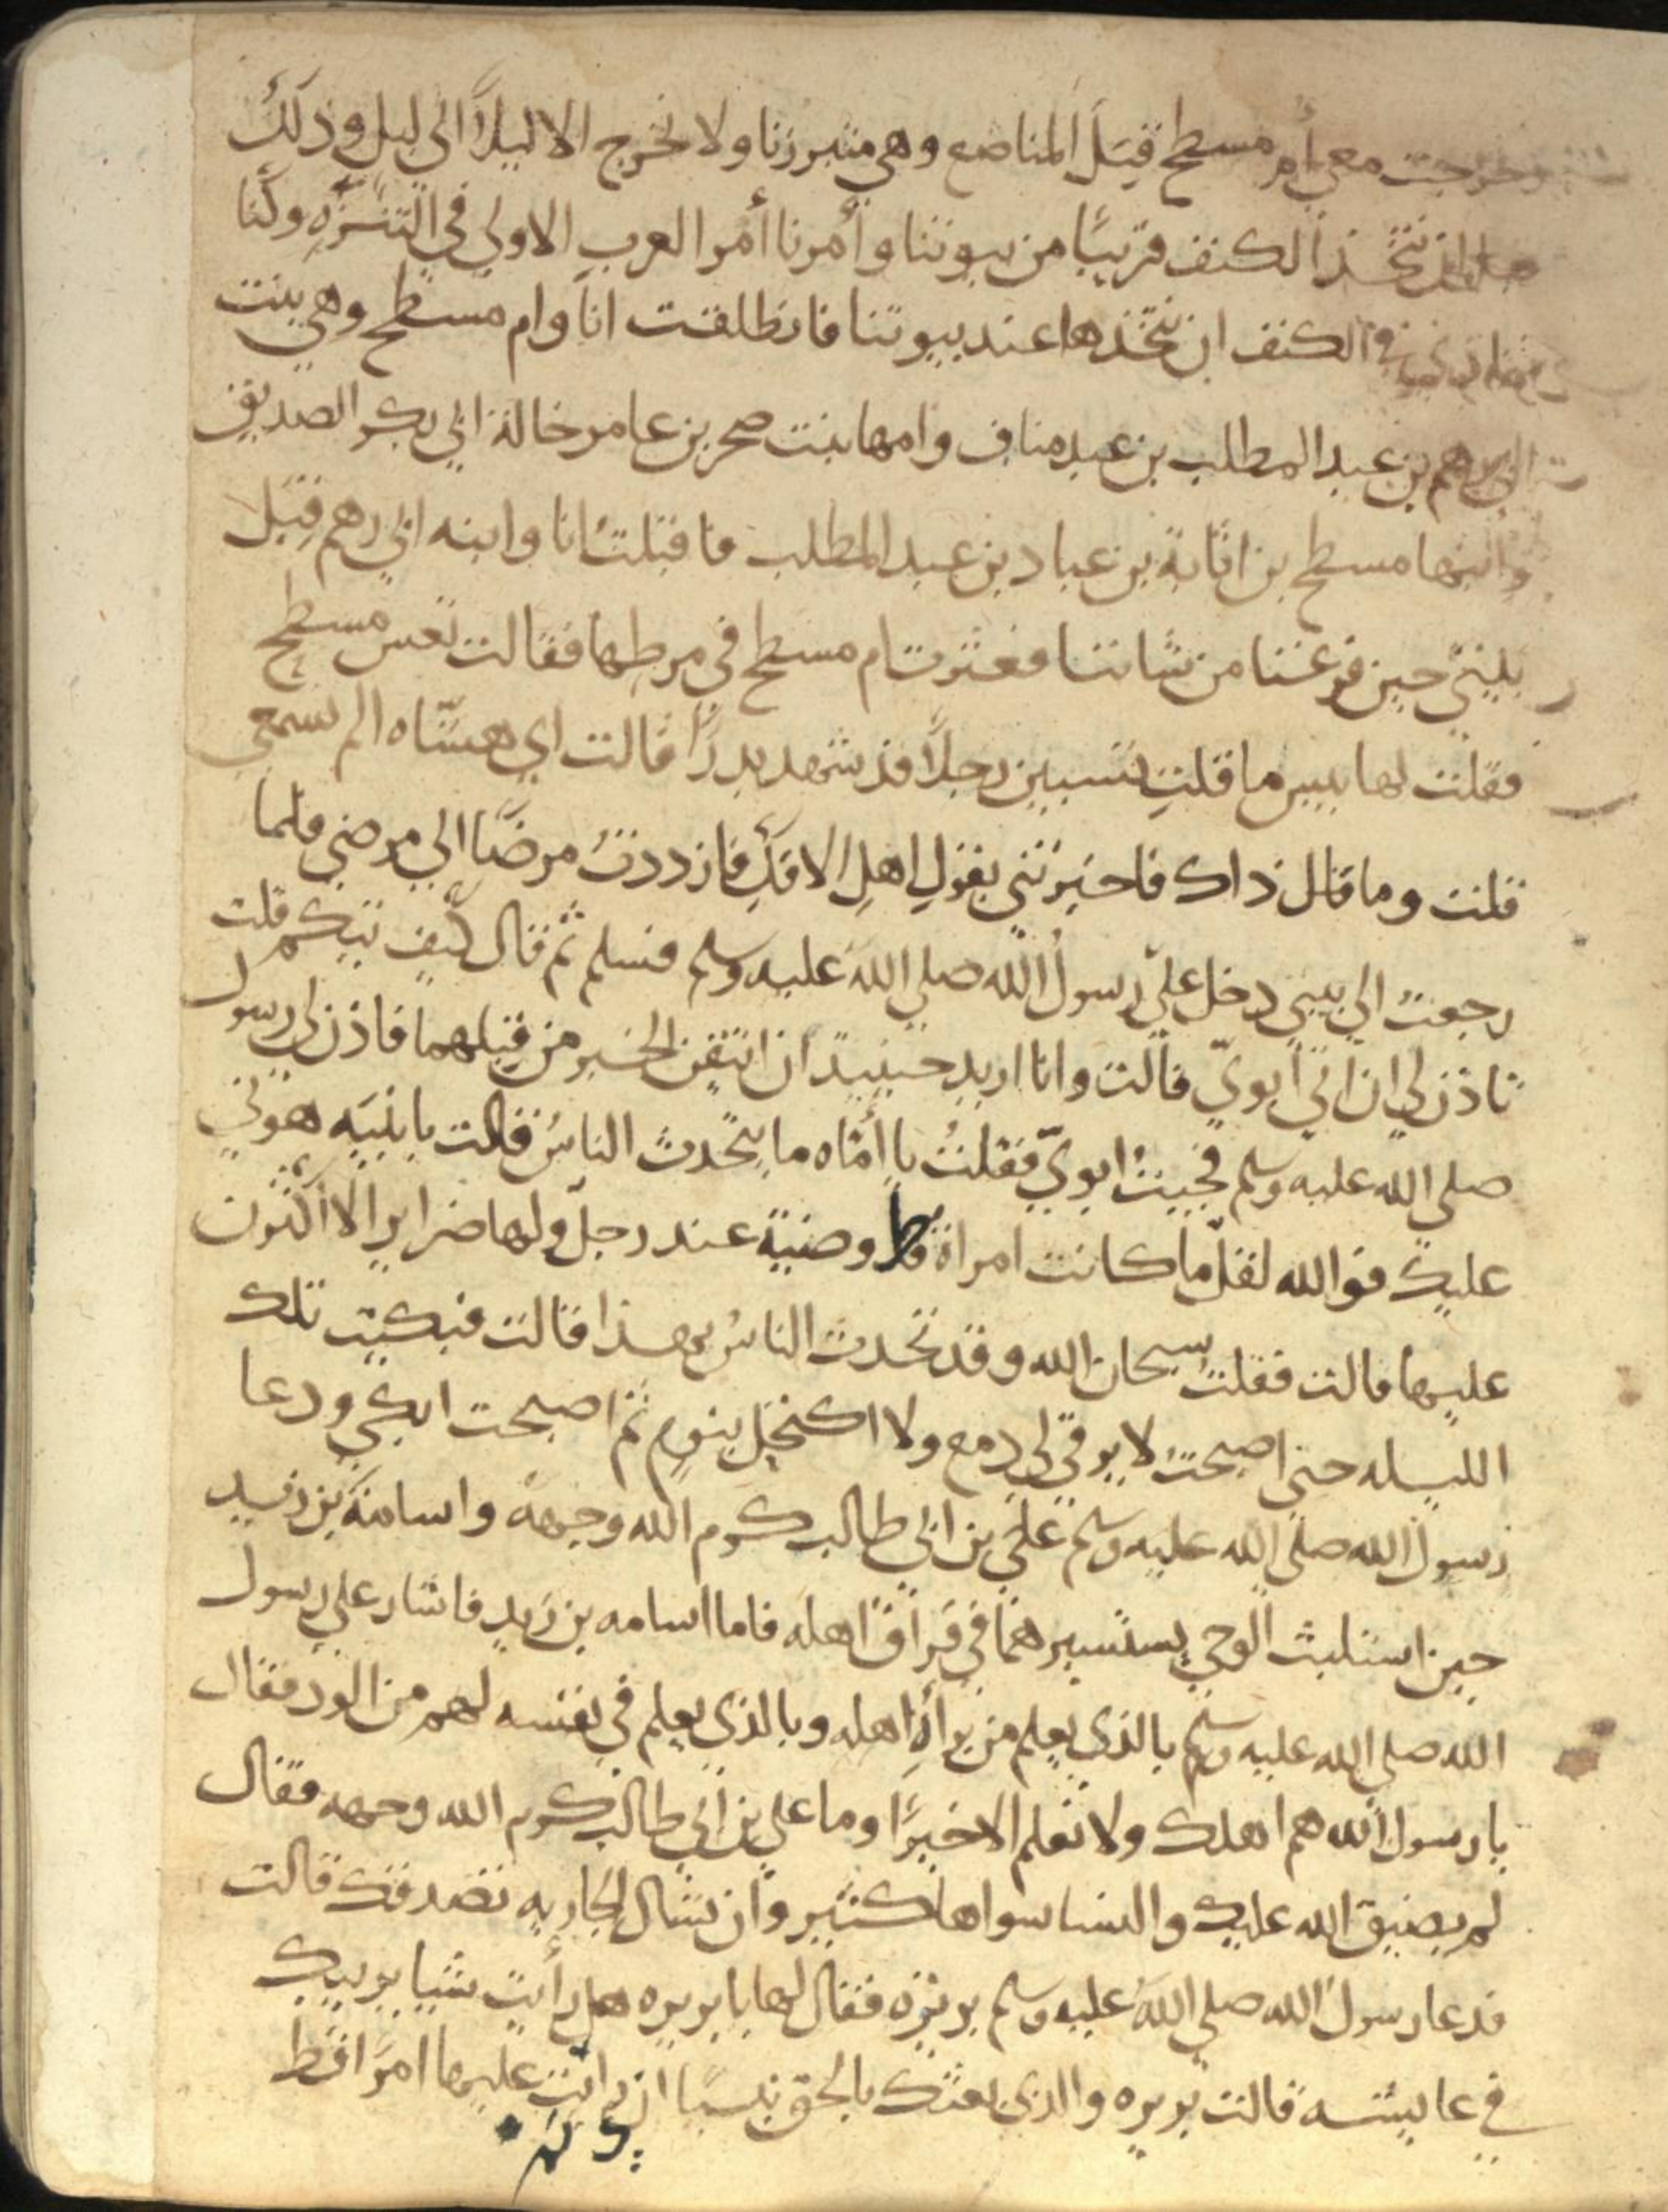 وخرجت معي أم مسطح قِبَل المناصع وهي متبرزنا ولا نخرج الا ليلاً الى ليل وذلك
نتخذ الكنف قريبًا من بيوتنا وأمرنا أمر العرب الاولى في التنزّه وكنّا
الكنف ان نتخذها عند بيوتنا فانطلقت انا وام مسطح وهي بنت
ابي رهم بن عبد المطلب بن عبد مناف وامها بنت صخر بن عامر خالة ابي بكر الصديق
وابنها مسطح بن اثاثة بن عباد بن عبد المطلب فاقبلتُ انا وابنه ابي رهم قِبَل
بيتي حين فرغنا من شاننا فعثرت ام مسطح في مرطها فقالت تعس مسطح
فقلت لها بيس ما قلتِ تسبين رجلاً قد شهد بدرًا قالت اي هنتاه الم تسمعي
قلت وما قال ذاك فاخبرتني بقول اهل الافك فازددتُ مرضًا الي مرضي فلما
رجعتُ الي بيتي دخل عليّ رسولُ الله صلي الله عليه وسلم فسلم ثم قال كيف تيكم قلت
تاذن لي ان اتي أبويّ قالت وانا اريد حينيذٍ ان اتيقن الخبر من قِبلهما فاذن لي رسول
صلي الله عليه وسلم فجيتُ ابويّ فقلتُ يا أمّاه ما يتحدث الناسُ فقالت يا بنيَه هوّني
عليك فوالله لقلّ ما كانت امراة قط وضيّة عند رجل ولها ضراير الا اكثرن
عليها قالت فقلت سبحان الله وقد تحدث الناسُ بهذا قالت فبكيت تلك
الليله حتى اصبحتُ لا يرقى لي دمع ولا اكتحل بنومٍ ثم اصبحت ابكي ودعا
رسول الله صلى الله عليه وسلم علي بن ابي طالب كرم الله وجهه واسامة بن زيد
حين استلبث الوحي يستشيرهما في فراق اهله فاما اسامه بن زيد فاشار علي رسول
الله صلى الله عليه وسلم بالذي يعلم من برأة اهله وبالذي يعلم في نفسه لهم من الود فقال
يا رسول الله هم اهلك ولا نعلم الا خيرًا وما علي بن ابي طالب كرم الله وجهه فقال
لم يضيق الله عليك والنسا سواها كثير وان تسال الجاريه تصدقك قالت
فدعا رسول الله صلي الله عليه وسلم بريرَه فقال لها يا بريره هل رأيت شيا يريبك
في عايشه قالت بريره والذي بعثك بالحق نبيًا ان رايت عليها امرًا قط